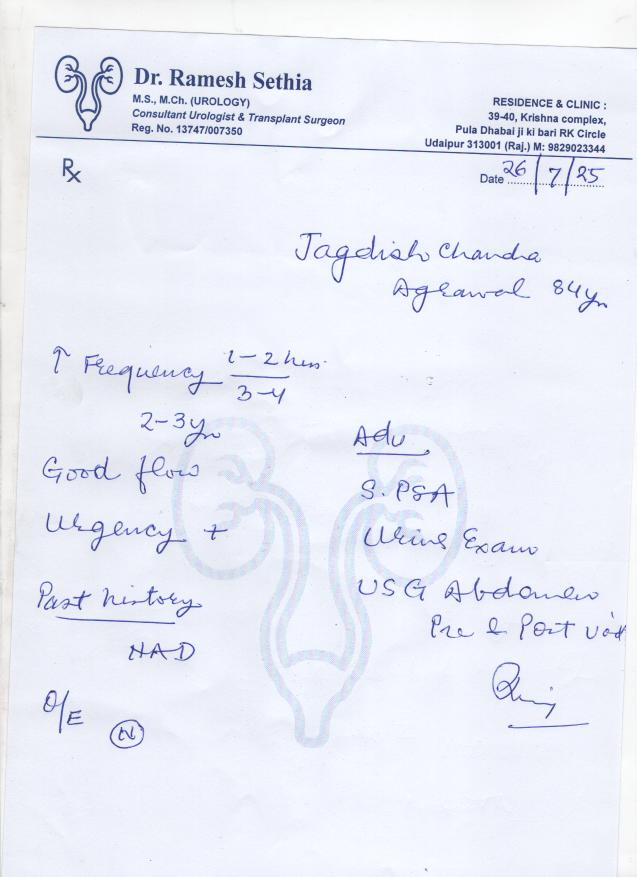 Dr. Ramesh Sethia
M.S., M.Ch. (UROLOGY)
Consultant Urologist & Transplant Surgeon
Reg. No. 13747/007350
RESIDENCE & CLINIC :
39-40, Krishna complex,
Pula Dhabai ji ki bari RK Circle
Udaipur 313001 (Raj.) M: 9829023344
Rx
Date 26/7/25
Jagdish Chandra
Agrawal 84yr
↑ Frequency 1-2 hrs
3-4
2-3yr
Good flow
Urgency +
Past history
NAD
O/E
N
Adv
S. PSA
Urine Exam
USG Abdomen
Pre & Post void